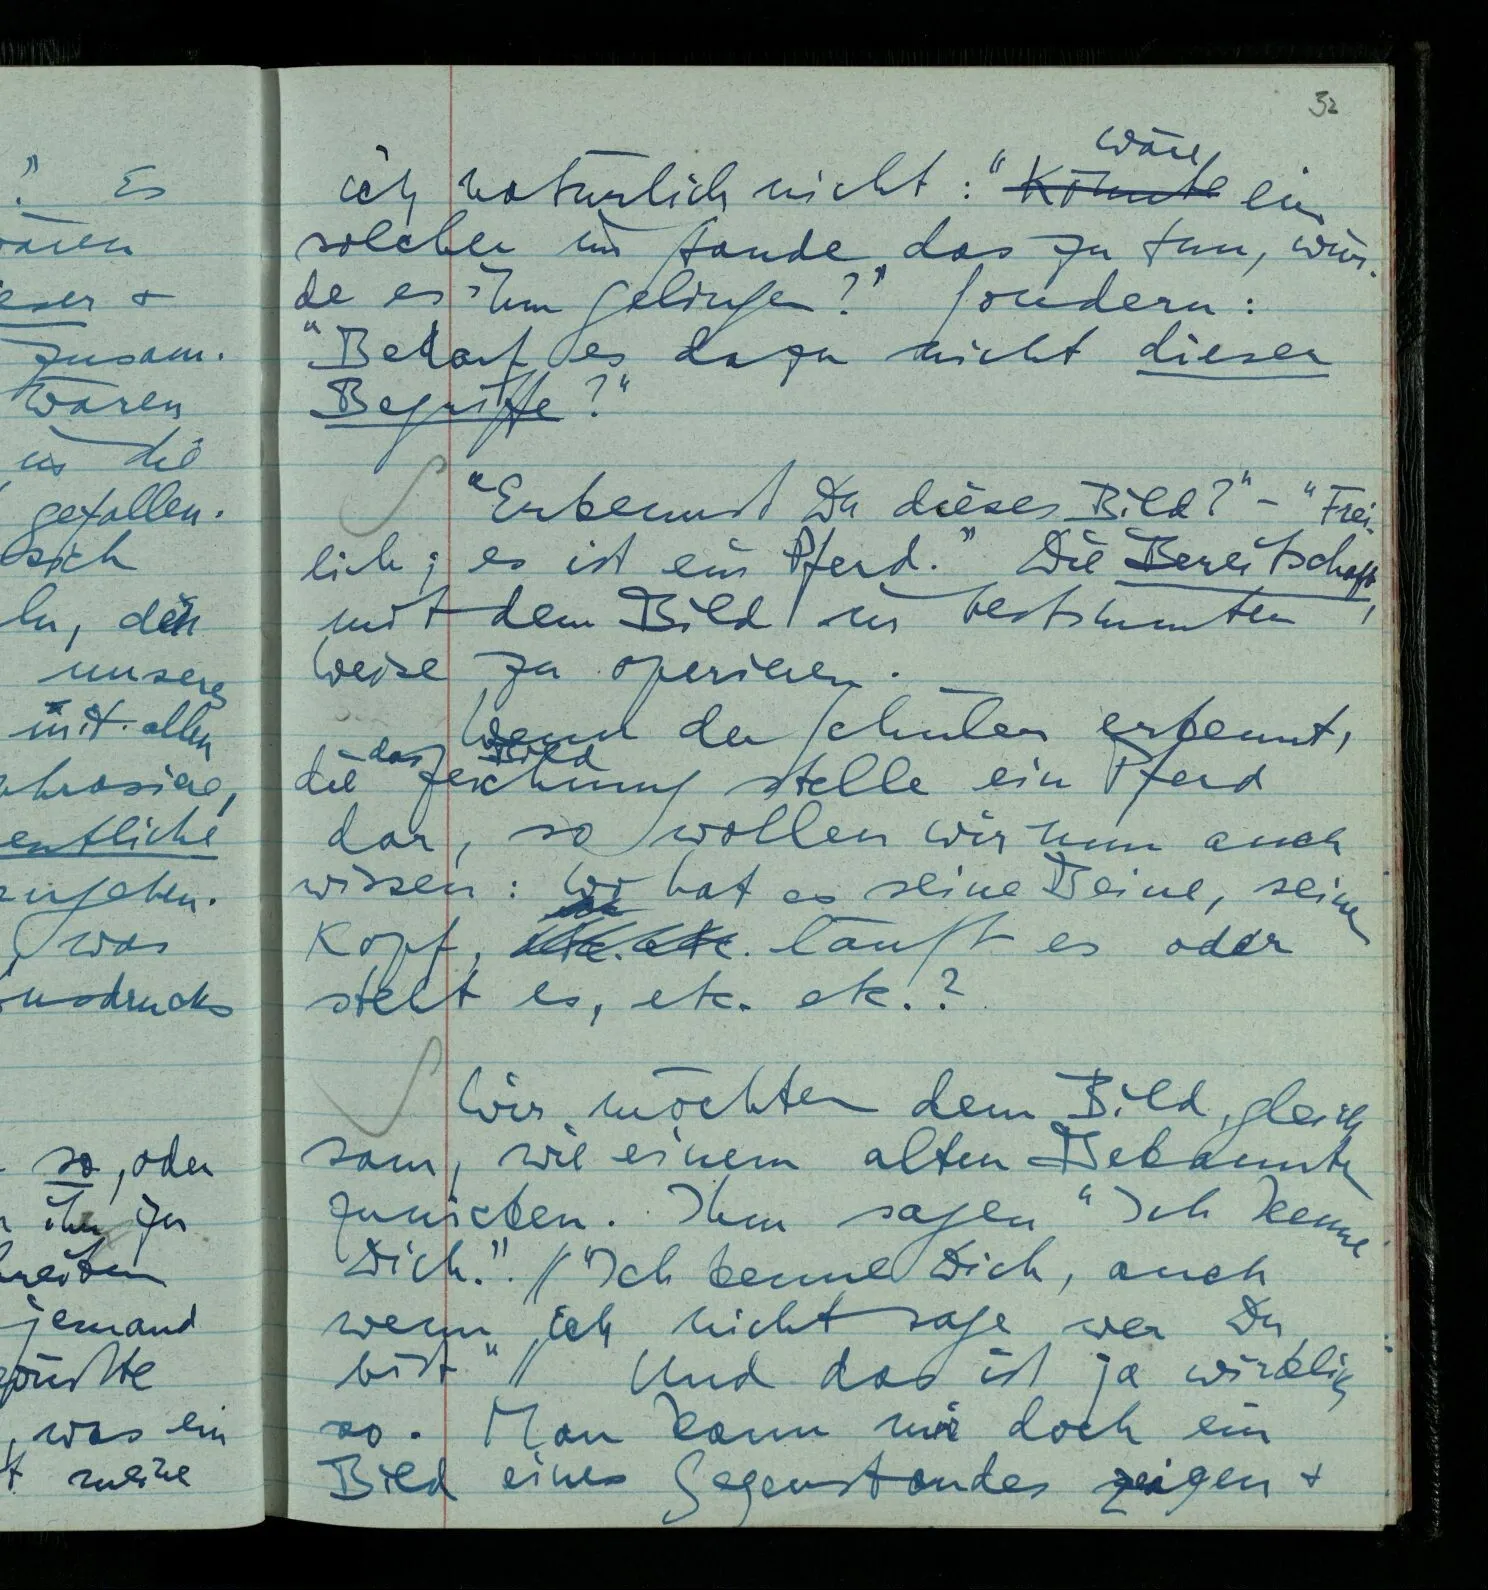 32
ich natürlich nicht: "Könnte wäre ein
solcher im stande, das zu tun, wür-
de es ihm gelingen?" sondern:
"Bedarf es dazu nicht dieser
Begriffe?"
"Erkennst Du dieses Bild?" – "Frei-
lich; es ist ein Pferd." Die Bereitschaft,
mit dem Bild in bestimmter
Weise zu operieren.
Wenn der Schüler erkennt,
das Bild
die Zeichnung stelle ein Pferd
dar, so wollen wir nun auch
wissen: Wo hat es seine Beine, seinen
Kopf, etc. etc. läuft es oder
steht es, etc. etc.?
Wir möchten dem Bild, gleich
sam, wie einem alten Bekannten
zunicken. Ihm sagen "Ich kenne
Dich.". // "Ich kenne Dich, auch
wenn ich nicht sage wer Du
bist" // Und das ist ja wirklich
so. Man kann mir doch ein
Bild eines Gegenstandes zeigen +
." Es
wären
+
zusam-
waren
in die
gefallen.
sich
den
unsere
mit allen
entliche
was
ausdrucks
so, oder
ihn zu
jemand
wüsste
, was ein
meine